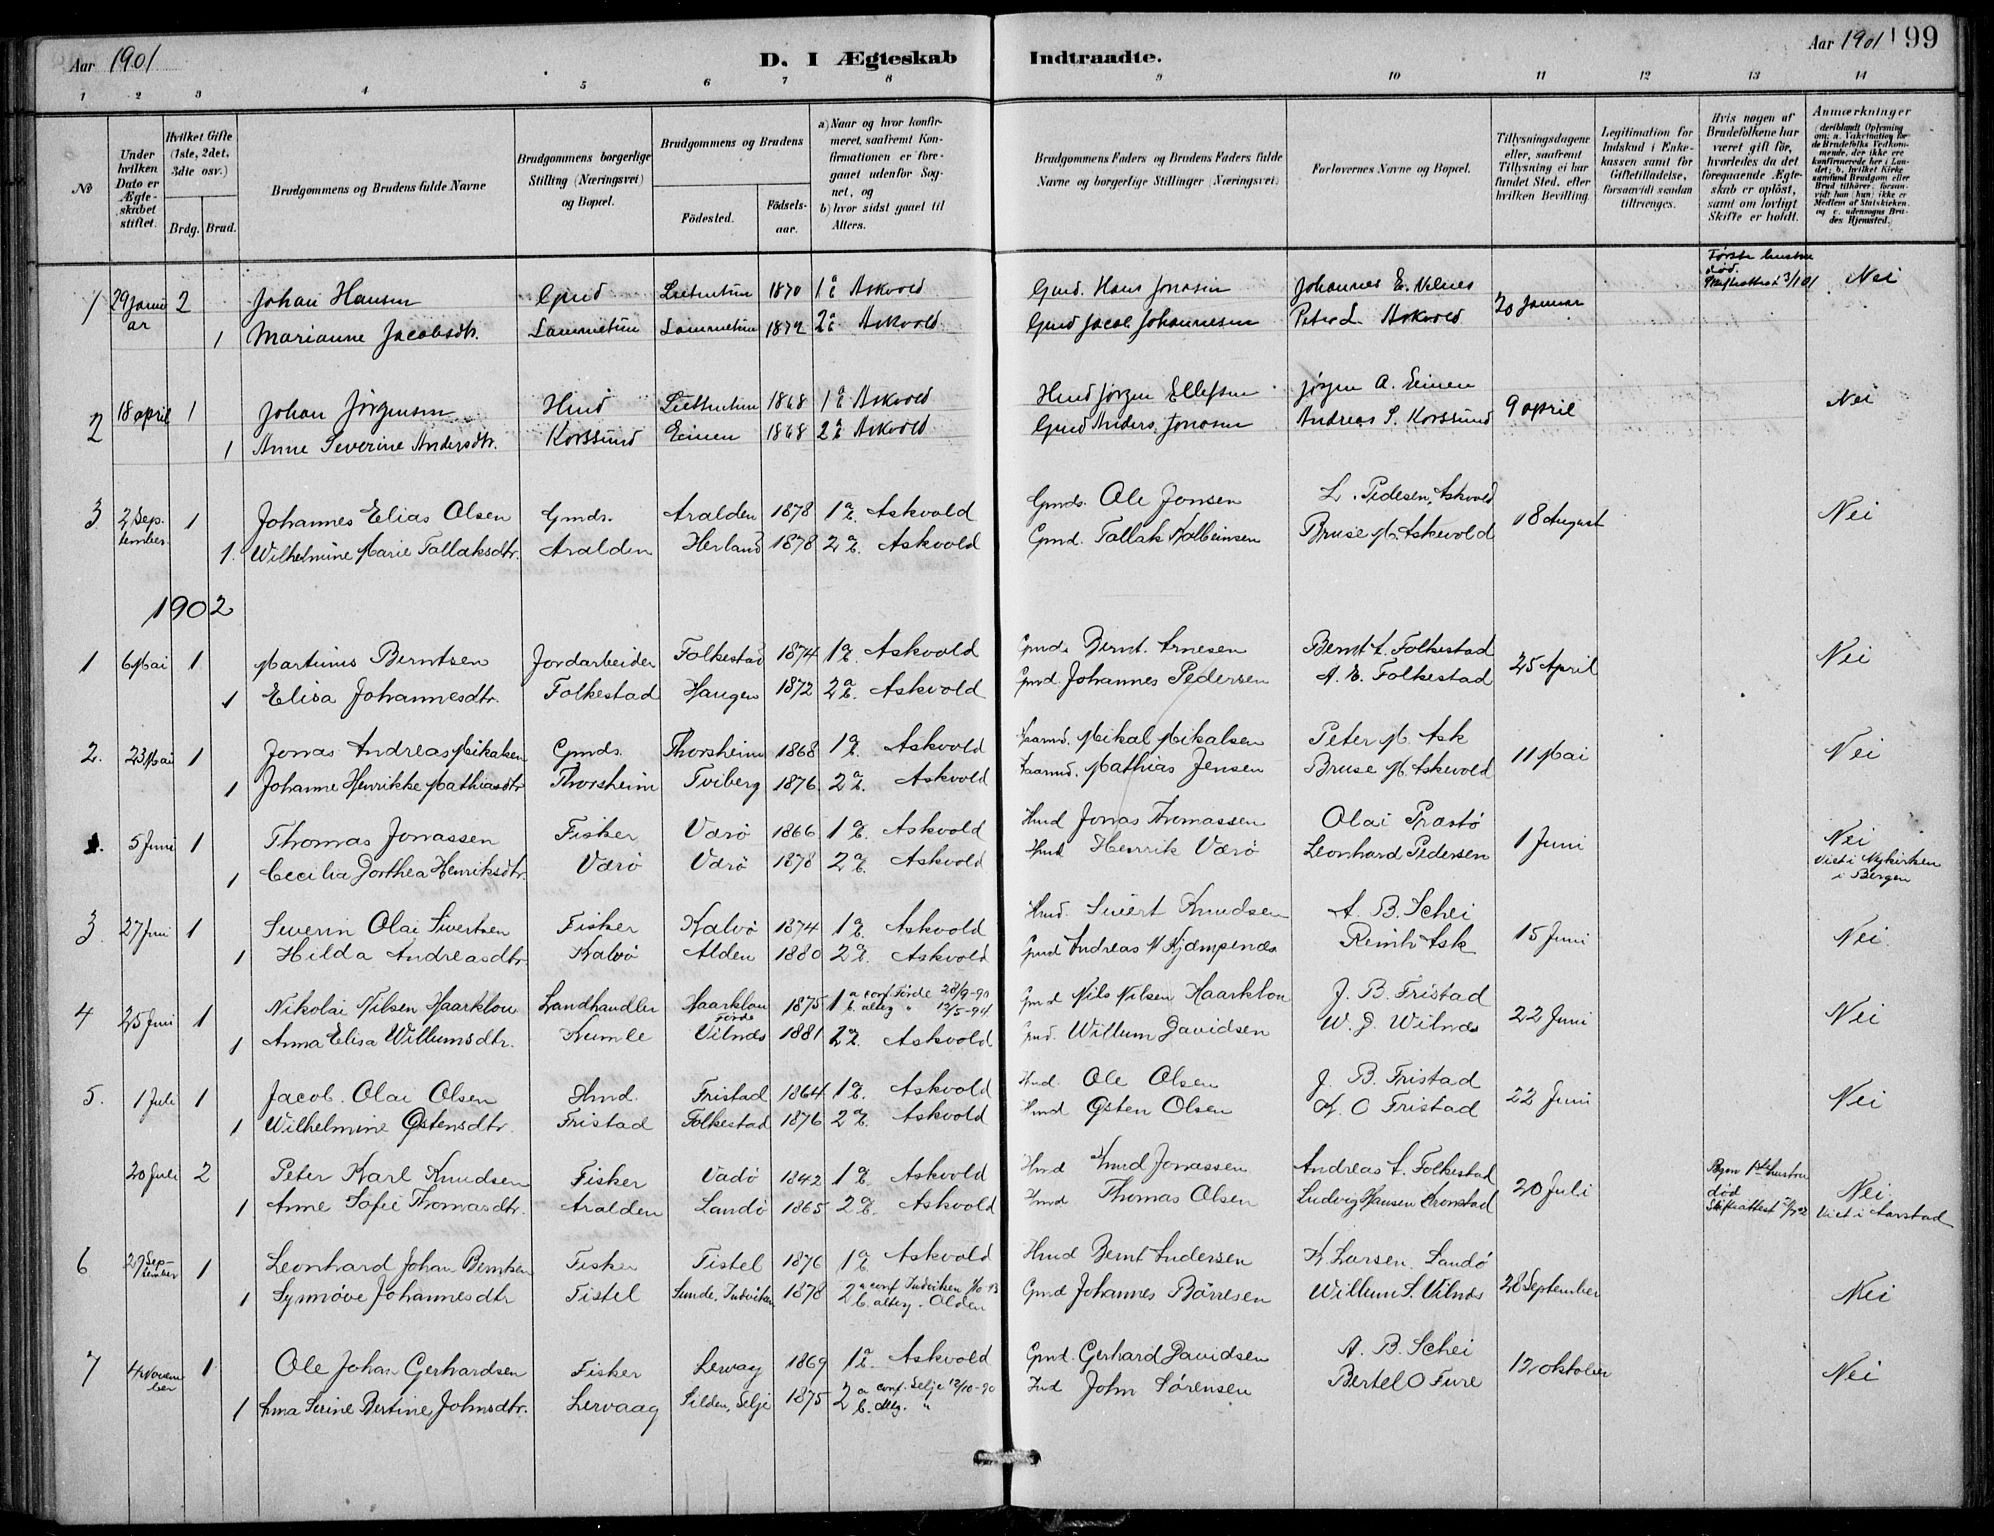 Aar 1901 D. I Ægteskab Indtraadte. Aar 1901 199
1 2 3 4 5 6 7 8 9 10 11 12 13 14
No
Under hvilken Dato er Ægteskabet stiftet.
Hvilket Gifte (1ste, 2det, 3die osv.)
Brdg. Brud.
Brudgommens og Brudens fulde Navne
Brudgommens borgerlige Stilling (Næringsvei) og Bopæl.
Brudgommens og Brudens
Fødested. Fødselsaar.
a) Naar og hvor konfirmeret, saafremt Konfirmationen er foregaaet udenfor Sognet, og
b) hvor sidst gaaet til Alters.
Brudgommens Faders og Brudens Faders fulde Navne og borgerlige Stillinger (Næringsvei)
Forlovernes Navne og Bopæl.
Tillysningsdagene eller, saafremt Tillysning ei har fundet Sted, efter hvilken Bevilling
Legitimation for Indskud i Enkekassen samt for Giftetilladelse, forsaavidt saadan tiltrænges.
Hvis nogen af Brudefolkene har været gift før, hvorledes da det foregaaende Ægteskab er opløst, samt om lovligt Skifte er holdt.
Anmærkninger
1 29 Januar 2 Johan Hansen Gmd 1870 1 a b Askvold Gmd. Hans Jonasen Johannes E. Vilnes 20 Januar Første hustru død. Nei
1 Marianne Jacobsdtr. Lammetun Lammetun 1872 2 a b Askvold Gmd Jacob Johannesen Peter L. Askvold
2 18 april 1 Johan Jörgensen Hmd 1868 1 a b Askvold Hmd Jørgen Ellefsen Jørgen A. Eimen 9 april Nei
1 Anne Severine Andersdtr. Korssund Eimen 1868 2 a b Askvold Gmd Anders Jonasen Andreas S. Korssund
3 2 September 1 Johannes Elias Olsen Gmds. Aralden 1878 1 a b. Askvold Gmds. Ole Jonsen L. Pedesen, Askvold 18 August Nei
1. Wilhelmine Marie Tollaksdtr. Aralden Herland 1878 2 a b. Askvold Gmd. Tollak Kolbeinsen Bruse M. Askevold
1902
1 6 Mai 1 Martinus Berntsen Jordarbeider Folkestad 1874 1 a b. Askvold Gmds Bernt Arnesen Bernt A. Folkestad 25 April Nei
1 Elisa Johannesdtr. Folkestad Haugen 1872 2 a b. Askvold Gmd. Johannes Pedersen A. E. Folkestad
2. 23 Mai 1 Jonas Andreas Mikalsen Gmds. Thorsheim 1868 1 a b. Askvold Mikal Mikalsen Peter M. Ask 11 Mai Nei
1 Johanne Henrikke Mathiasdtr Thorsheim Tviberg 1876. 2 a b. Askvold Mathias Jensen Bruse M. Askevold
5 Juni 1 Thomas Jonassen Fisker Værø 1866 1 a b. Askvold Hmd Jonas Thomassen Olai Præstø 1 Juni Nei
1 Cecilia Dorthea Henriksdtr. Værø Værø 1878 2 a b. Askvold Hmd Henrik Værø Leonhard Pedersen Viet i Nykirken i Bergen
3. 27 Juni 1 Severin Olai Sivertsen Fisker Kalvø 1874 1 a b. Askvold Hmd. Sivert Knudsen A. B. Schei 15 Juni Nei.
1 Hilda Andreasdtr. Kalvø Alden 1880 2 a b. Askvold Gmd Andreas N Kjempenæs Reinh. Ask
4 25 Juni 1 Nikolai Nilsen Haarklou Landhandler Haarklou Førde 1875 1 a conf. Førde 28/9-90 b. alterg " 13/5-94 Gmd Nils Nilsen Haarklou J. B. Fristad 22 Juni Nei
1 Anna Elisa Willumsdtr. Kumle Vilnæs 1881 2 a b. Askvold Gmd. Willum Davidsen W. D. Wilnæs
5. 1 Juli 1 Jacob Olai Olsen Hmd. Fristad 1864 1 a b. Askvold Hmd Ole Olsen J. B. Fristad 22 Juni Nei
1 Wilhelmine Østensdtr. Fristad Folkestad 1876 2 a b. Askvold Hmd Østen Olsen K. O Fristad
20 Juli 2 Peter Karl Knudsen Fisker Vadø 1842 1 a b. Askvold Hmd Knud Jonassen Andreas A. Folkestad 20 Juli 1ste hustru død Nei
1 Anne Sofie Thomasdtr. Aralden Landø 1865 2 a b. Askvold Hmd Thomas Olsen Ludvig Hansen Skifteattest Viet i Aarstad
6 29 September 1 Leonhard Johan Berntsen Fisker Tistel 1876 1 a b. Askvold Hmd Bernt Andersen K. Larsen Landø 28 September Nei
1 Synnøve Johannesdtr Tistel Sunde, Indviken 1878 2 a conf. Indviken 1/10 93 b. alterg. Olden Gmd Johannes Børresen Willum S. Vilnæs
7 4 November 1 Ole Johan Gerhardsen Fisker Lervaag 1869 1 a b. Askvold Gmd. Gerhard Davidsen A. B. Schei 12 Oktober Nei
1 Anna Serine Bertine Johnsdtr. Lervaag Silden, Selje 1875 2 a conf. Selje 12/10-90 b. alterg. " John Sørensen Bertel O Fure